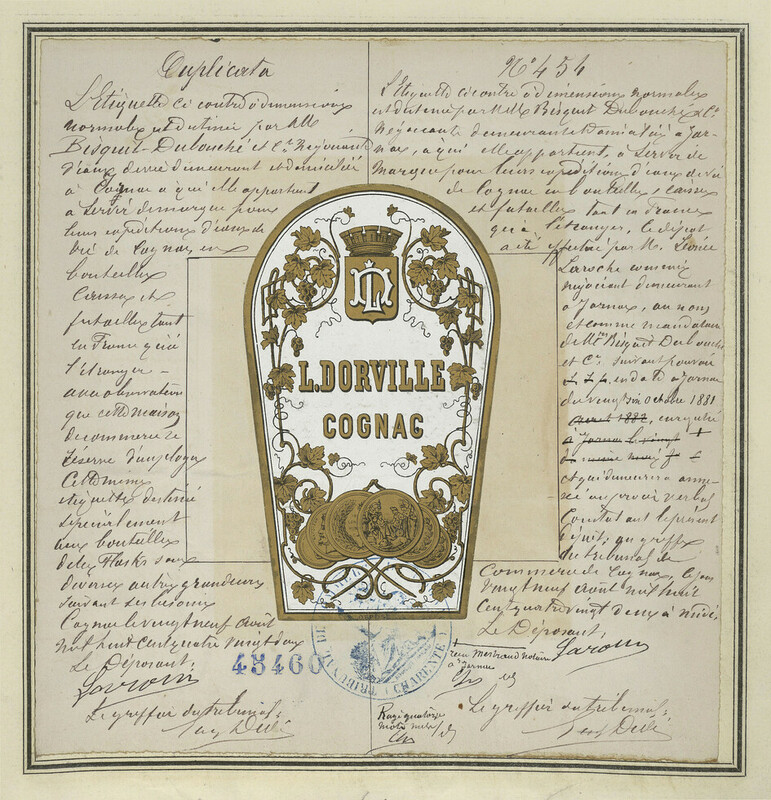 Duplicata
L'étiquette ci contre à dimensions
normales est destinée par MM
Bisquit-Dubouché et Cie Négociants
d'eaux de vie demeurant et domiciliés
à Cognac à qui elle appartient
à servir de marque pour
leurs expéditions d'eaux de
vie de Cognac en
bouteilles
caisses et
futailles tant
en France qu'à
l'étranger -
avec observation
que cette maison
de commerce se
réserve d'employer
cette même
étiquette destinée
spécialement
aux bouteilles
de
diverses autres grandeurs
suivant ses besoins
Cognac le vingt neuf Août
mil huit cent quatre vingt deux
Le Déposant:
Laroche
Le greffier du tribunal:
N° 454
L'étiquette ci contre à dimensions normales
est destinée par MM Bisquit Dubouché & Cie
Négociants demeurant & domiciliés à Jar-
nac, à qui elle appartient, à servir de
marque pour leurs expéditions d'eaux de vie
de Cognac en bouteilles, caisses
et futailles tant en France
qu'à l'étranger, le dépôt
a été effectué par M.
Laroche commis
négociant demeurant
à Jarnac, au nom
et comme mandataire
de MM Bisquit Dubouché
et Cie suivant pouvoir
en date à Jarnac
du vingt Octobre 1881
enregistré
à Jarnac le vingt
et qui demeurera anne-
xé au procès verbal
constatant le présent
dépôt; au greffe
du tribunal de
Commerce de Cognac, le jour
vingt neuf Août mil huit
cent quatre vingt deux à midi.
Le Déposant,
Laroche
notaire
à Jarnac
Rayé quatorze
mots nuls
Le greffier du tribunal:
LD
L. DORVILLE
COGNAC
45460
TRIBUNAL DE
(CHARENTE)